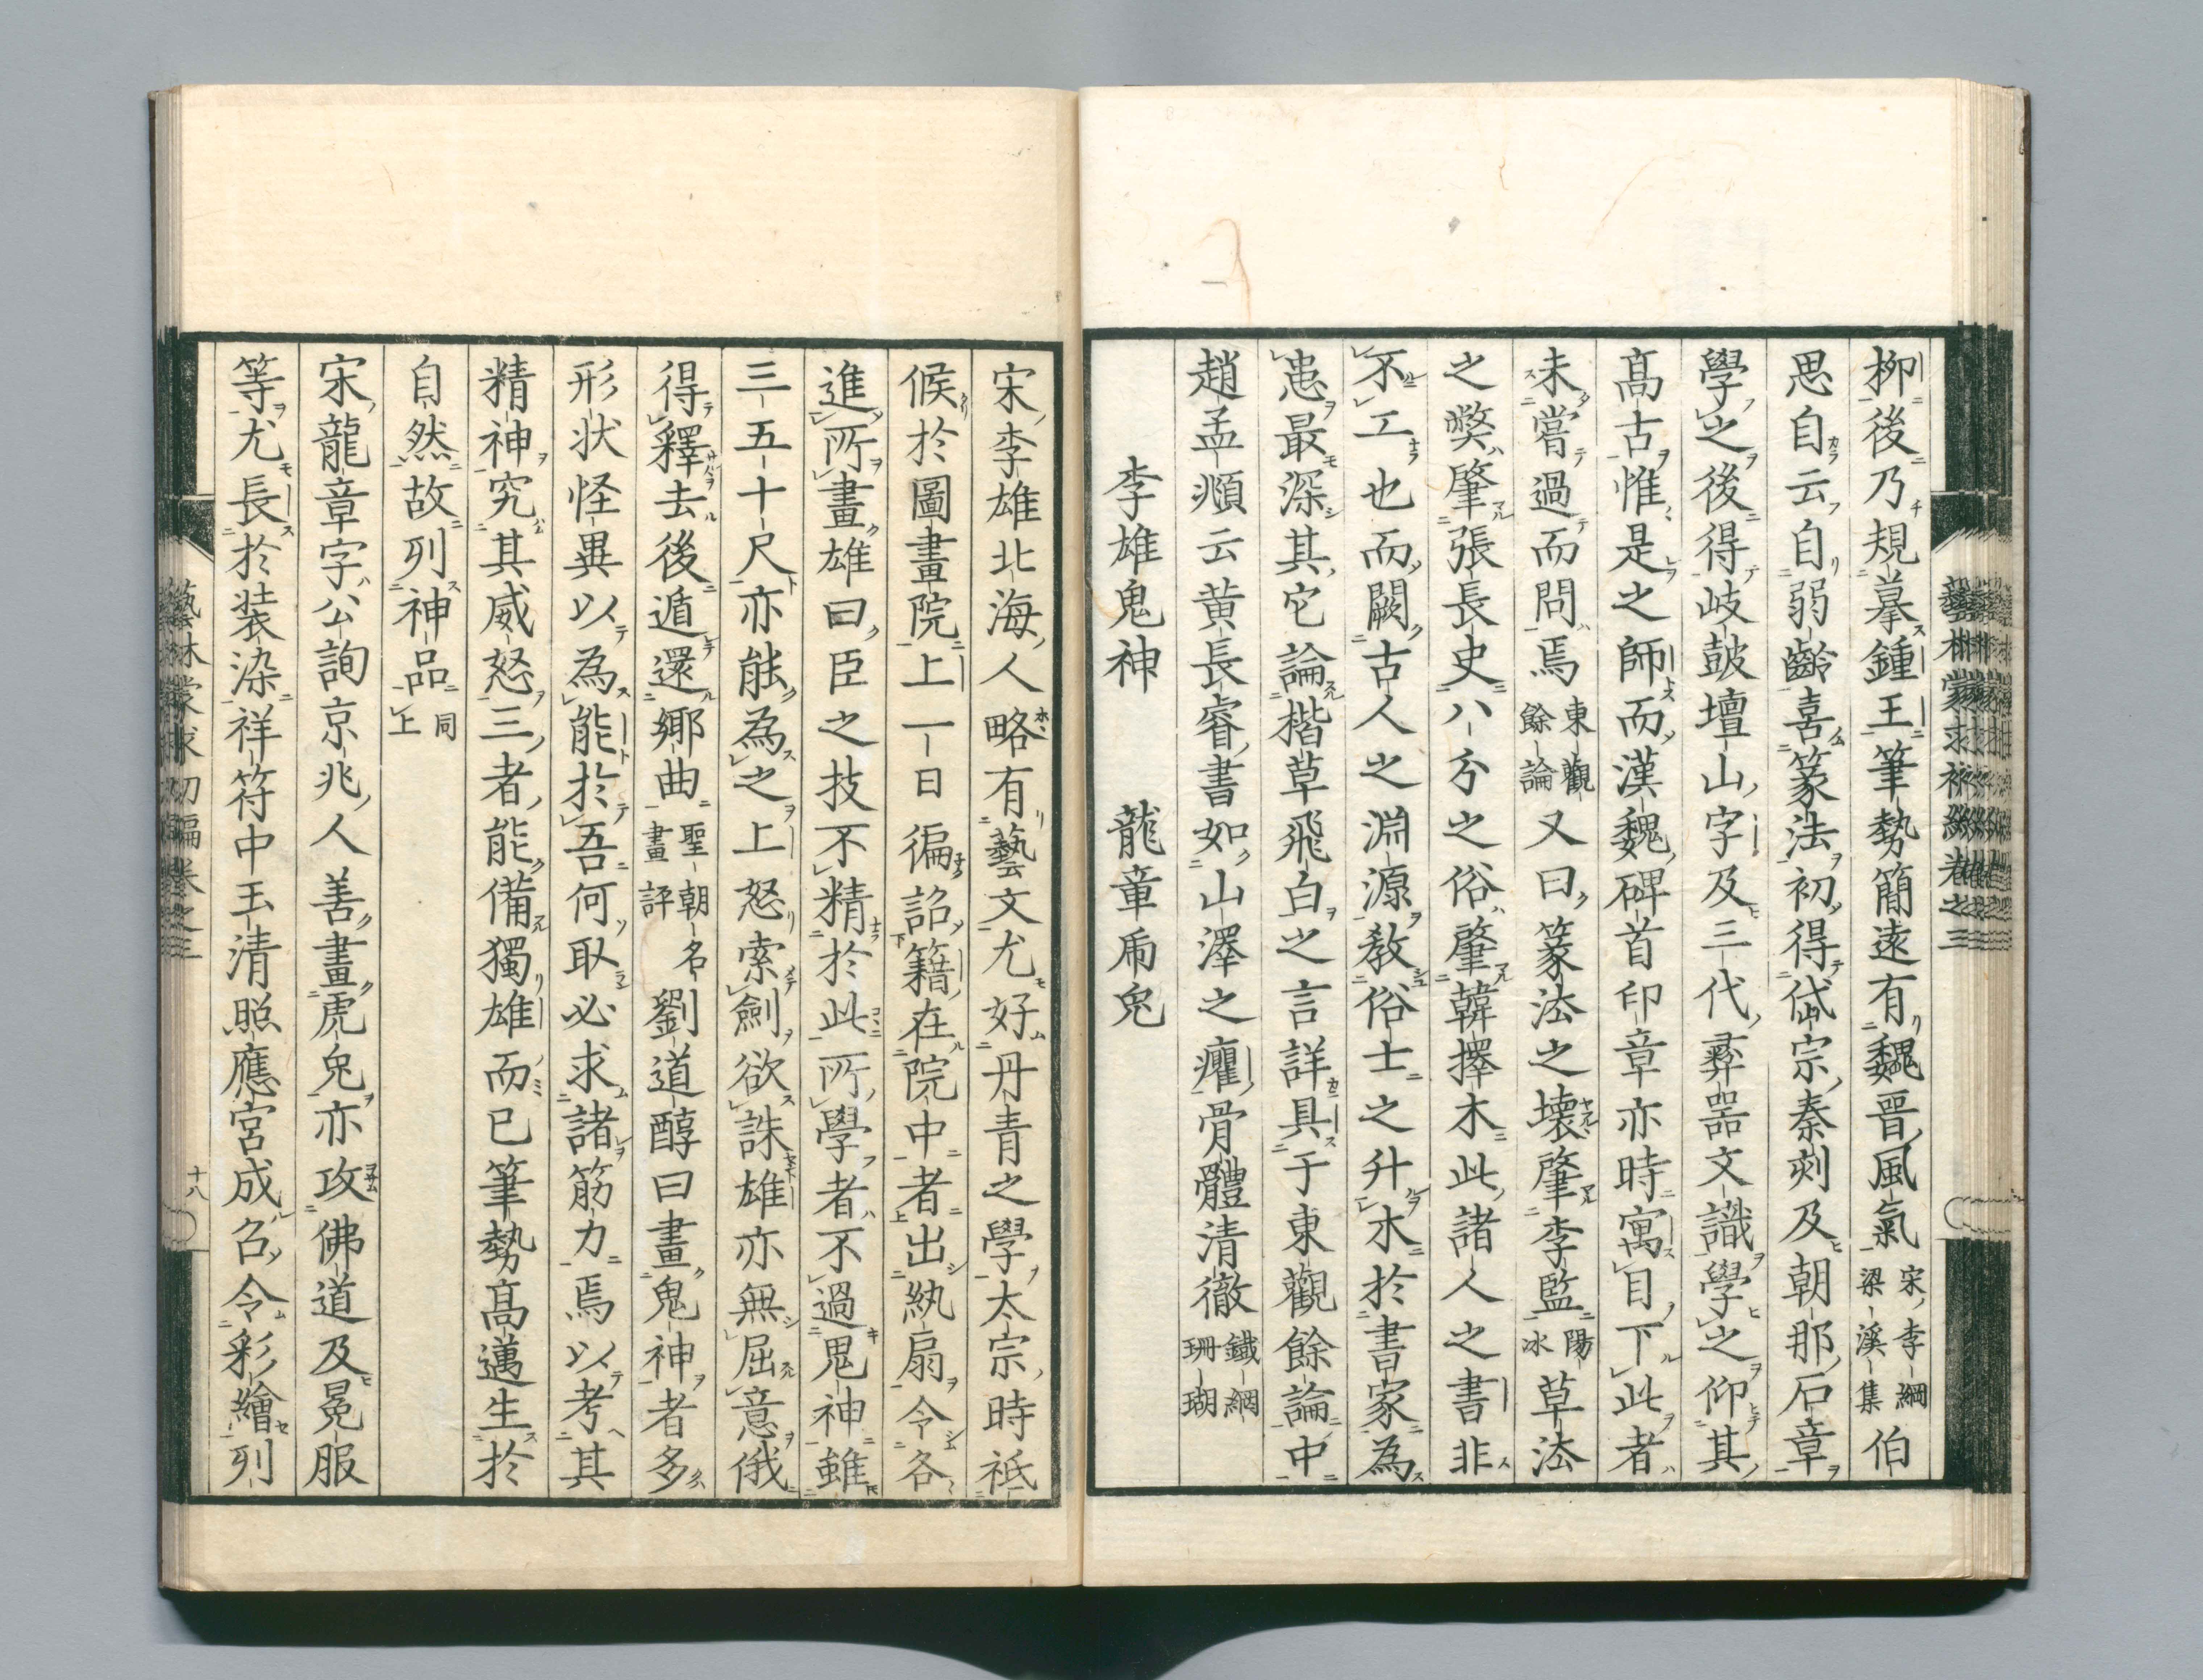 柳後乃規摹鍾王筆勢簡遠有魏晋風氣宋李綱梁溪集伯
思自云自弱齡喜篆法初得岱宗秦刻及朝那石章
學之後得岐鼓壇山字及三代彜器文識學之仰其
高古惟是之師而漢魏碑首印章亦時寓目下此者
未嘗過而問焉東觀餘論又曰篆法之壞肇李監陽冰草法
之弊肇張長史八分之俗肇韓擇木此諸人之書非
不工也而闕古人之淵源敎俗士之升木於書家為
患最深其它論楷草飛白之言詳具于東觀餘論中
趙孟頫云黄長睿書如山澤之癯骨體清徹鐵網珊瑚
李雄鬼神　龍章虎兔
宋李雄北海人略有藝文尤好丹青之學太宗時祇
候於圖畫院上一日徧詔籍在院中者出紈扇令各
進所畫雄曰臣之技不精於此所學者不過鬼神雖
三五十尺亦能為之上怒索劍欲誅雄亦無屈意俄
得釋去後遁還鄉曲聖朝名畫評劉道醇曰畫鬼神者多
形状怪異以為能於吾何取必求諸筋力焉以考其
精神究其威怒三者能備獨雄而已筆勢高邁生於
自然故列神品同上
宋龍章字公詢京兆人善畫虎兔亦攻佛道及冕服
等尤長於装染祥符中玉清照應宮成召令彩繪列
藝林蒙求初編卷之三
十八